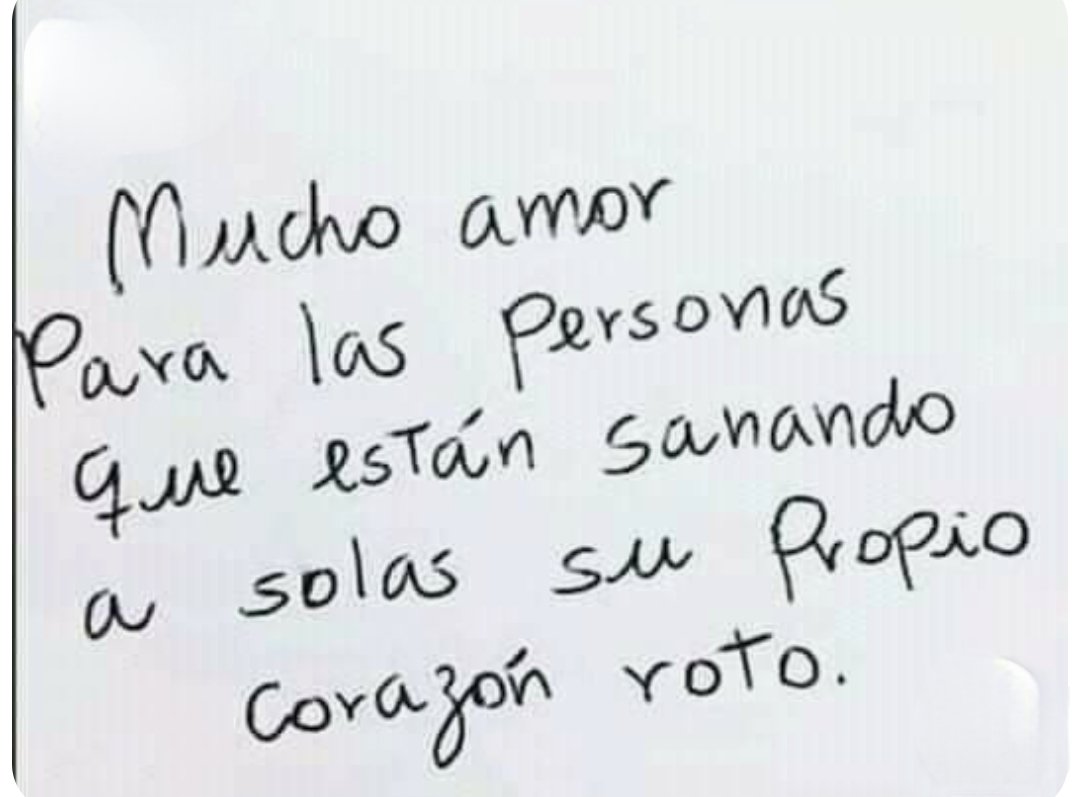 Mucho amor
Para las personas
que están sanando
a solas su propio
corazón roto.